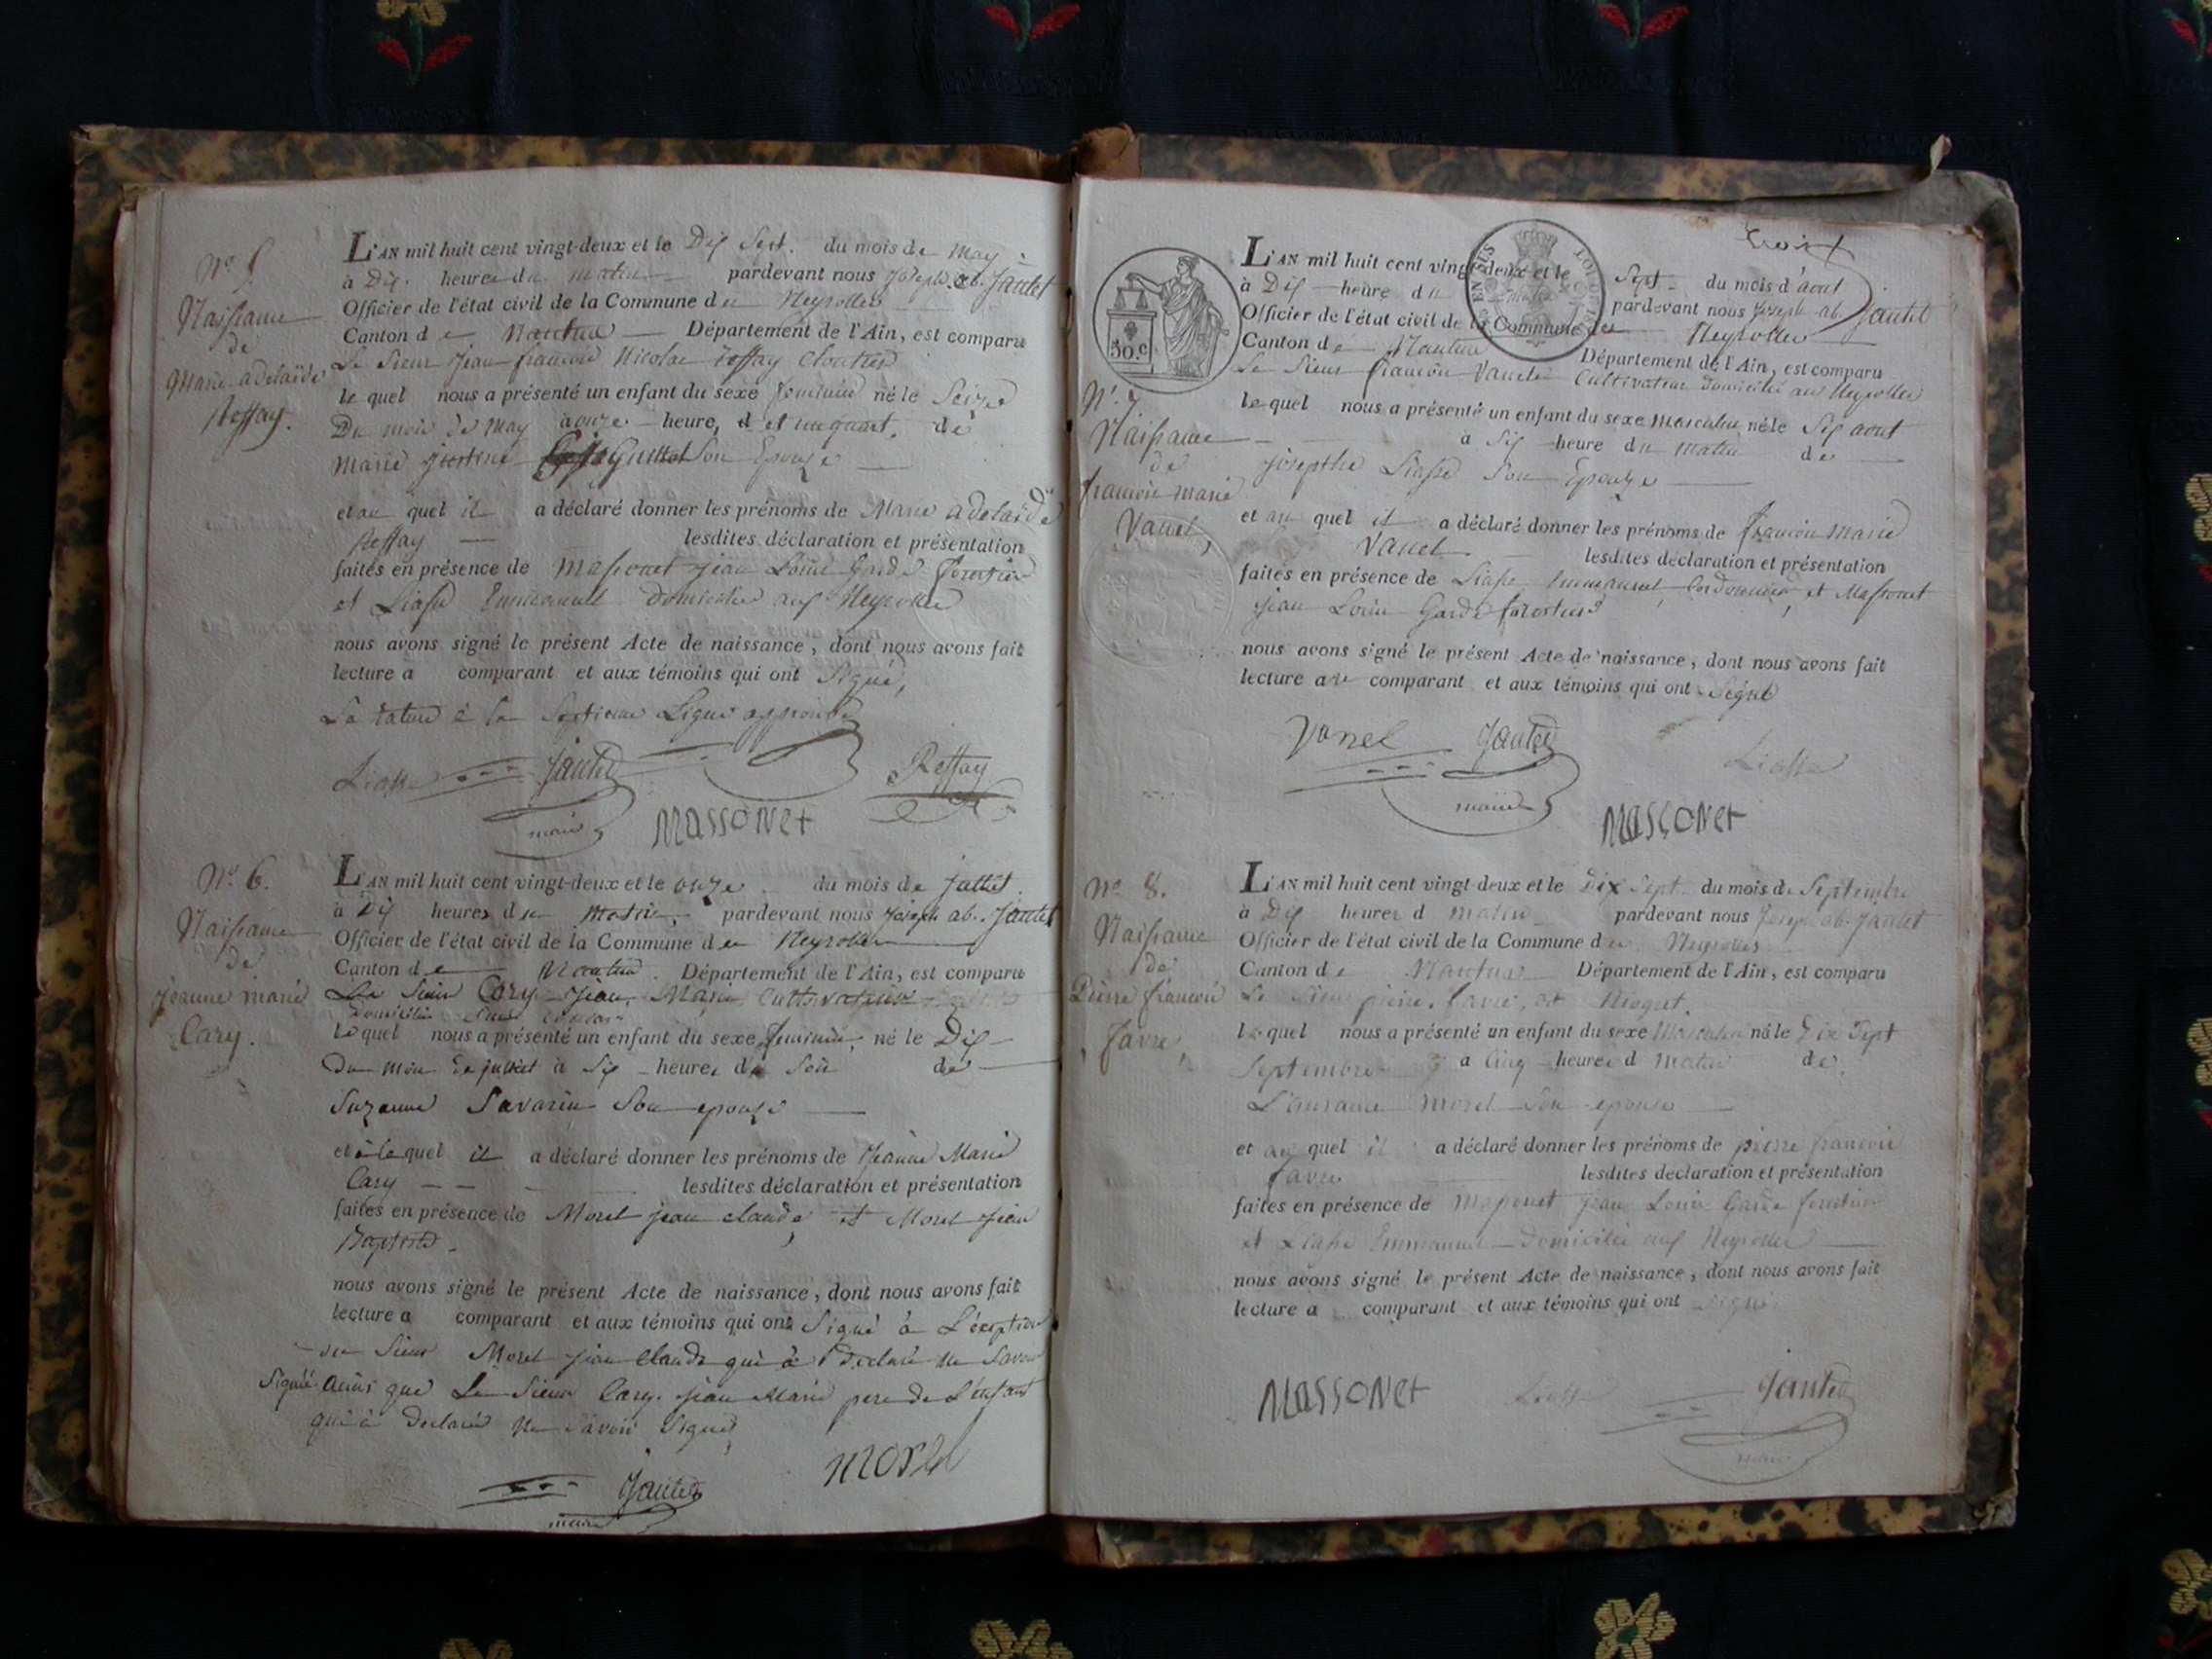 N.º 5.
Naissance
de
Marie adelaïde
Reffay.
L'AN mil huit cent vingt-deux et le Dix Sept. du mois de May
à Dix heures du matin pardevant nous Joseph ab. Jantet
Officier de l'état civil de la Commune des Neyrolles
Canton de Nantua Département de l'Ain, est comparu
Le Sieur Jean françois Nicolas Reffay Cloutier
lequel nous a présenté un enfant du sexe feminin né le Seize
Du mois de May à onze heures et un quart, de
Marie justine Guillot Son Epouse
et au quel il a déclaré donner les prénoms de Marie adelaïde
Reffay lesdites déclaration et présentation
faites en présence de Massonet jean Louis Garde forestier
et Liasse Emmanuel domicilié aux Neyrolles
nous avons signé le présent Acte de naissance, dont nous avons fait
lecture a comparant et aux témoins qui ont Signé,
La rature à la Septieme Ligne approuvée
Liasse Jantet Reffay
maire Massonet
N.º 6.
Naissance
de
jeanne marie
Cary.
L'AN mil huit cent vingt-deux et le onze du mois de juillet
à Dix heures du Matin, pardevant nous joseph ab. Jantet
Officier de l'état civil de la Commune des Neyrolles
Canton de Nantua. Département de l'Ain, est comparu
Le Sieur Cary Jean Marie Cultivateur
domicilié
lequel nous a présenté un enfant du sexe feminin, né le Dix
du mois de juillet à Six heures du Soir de
Suzanne Savarin Son epouse
et à lequel il a déclaré donner les prénoms de Jeanne Marie
Cary lesdites déclaration et présentation
faites en présence de Morel jean claude, et Morel jean
Baptiste.
nous avons signé le présent Acte de naissance, dont nous avons fait
lecture a comparant et aux témoins qui ont Signé à L'éxeption
du Sieur Morel jean Claude qui à declaré ne Savoir
Signé ainsi que Le Sieur Cary jean Marie pere de L'enfant
qui à declaré ne Savoir Signer
Jantet Morel
maire
trois
50.c
EN SUS
N.º 7
Naissance
de
françois marie
Vanel,
L'AN mil huit cent vingt-deux et le Sept du mois d'août
à Dix heure du pardevant nous Joseph ab. Jantet
Officier de l'état civil de la Commune des Neyrolles
Canton de Nantua Département de l'Ain, est comparu
Le Sieur françois Vanel Cultivateur domicilié aux Neyrolles
lequel nous a présenté un enfant du sexe masculin né le Six aout
à Six heure du matin de
josepthe Liasse Son Epouse
et au quel il a déclaré donner les prénoms de françois Marie
Vanel lesdites déclaration et présentation
faites en présence de Liasse Emmanuel, Cordonnier, et Massonet
jean Louis Garde forestier
nous avons signé le présent Acte de naissance, dont nous avons fait
lecture au comparant et aux témoins qui ont Signé
Vanel Jantet Liasse
maire Massonet
N.º 8.
Naissance
de
Pierre françois
Favre,
L'AN mil huit cent vingt-deux et le Dix Sept du mois de Septembre
à Dix heures d matin pardevant nous Joseph ab. Jantet
Officier de l'état civil de la Commune des Neyrolles
Canton de Nantua Département de l'Ain, est comparu
Le Sieur pierre favre,
lequel nous a présenté un enfant du sexe Masculin né le Dix Sept
Septembre a Cinq heures d matin de
Morel Son epouse
et au quel il a déclaré donner les prénoms de pierre françois
favre lesdites déclaration et présentation
faites en présence de Massonet jean Louis Garde forestier
et Liasse Emmanuel domicilié aux Neyrolles
nous avons signé le présent Acte de naissance, dont nous avons fait
lecture a comparant et aux témoins qui ont signé
Massonet Liasse Jantet
maire